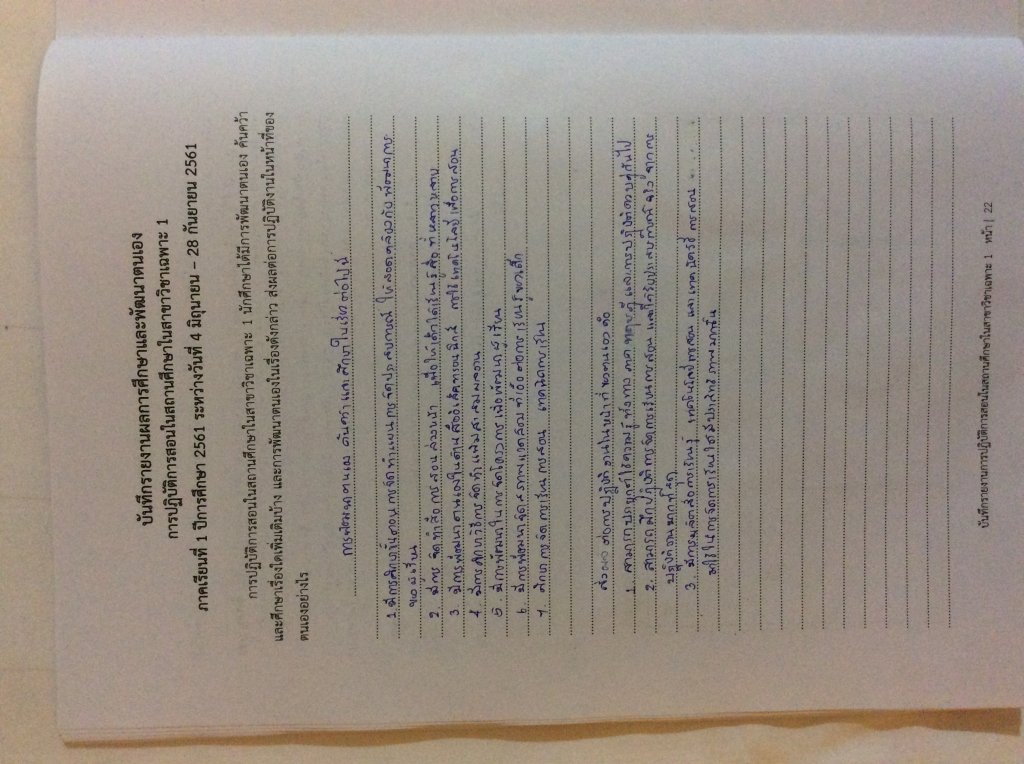 บันทึกรายงานผลการศึกษาและพัฒนาตนเอง
การปฏิบัติการสอนในสถานศึกษาในสาขาวิชาเฉพาะ 1
ภาคเรียนที่ 1 ปีการศึกษา 2561 ระหว่างวันที่ 4 มิถุนายน – 28 กันยายน 2561
การปฏิบัติการสอนในสถานศึกษาในสาขาวิชาเฉพาะ 1 นักศึกษาได้มีการพัฒนาตนเอง ค้นคว้า
และศึกษาเรื่องใดเพิ่มเติมบ้าง และการพัฒนาตนเองในเรื่องดังกล่าว ส่งผลต่อการปฏิบัติงานในหน้าที่ของ
ตนเองอย่างไร
การพัฒนาตนเอง ค้นคว้า และศึกษาในเรื่องต่อไปนี้
1. มีการศึกษาขั้นตอน การจัดทำแผน การจัดประสบการณ์ ให้สอดคล้องกับ พัฒนาการ
ของผู้เรียน
2. มีการ จัดทำสื่อ การสอนล่วงหน้า เพื่อให้เด็กได้เรียนรู้สื่อ ที่หลากหลาย
3 มีการพัฒนาตนเองในด้านสื่ออิเล็กทรอนิกส์ การใช้เทคโนโลยี เพื่อการสอน
4. มีการศึกษาวิธีการจัดทำแฟ้มสะสมผลงาน
5. มีการพัฒนาในการจัดโครงการเพื่อพัฒนาผู้เรียน
6. มีการพัฒนาจัดสภาพแวดล้อม ที่เอื้อต่อการเรียนรู้ของเด็ก
7. ศึกษาการจัดการเรียน การสอน เทคนิคการเรียน
ส่งผลต่อการปฏิบัติงานในหน้าที่ของตนเองคือ
1. สามารถประยุกต์ใช้ความรู้ ทั้งทาง ภาคทฤษฎี และการปฏิบัติควบคู่กันไป
2. สามารถฝึกปฏิบัติการจัดการเรียนการสอน และได้รับประสบการณ์จริง จากการ
ปฏิบัติงานมากที่สุด
3 มีการผลิตสื่อการเรียนรู้ เทคโนโลยีการสอน และเทคนิควิธี การสอน
มาใช้ในการจัดการเรียนให้มีประสิทธิภาพมากขึ้น
บันทึกรายงานการปฏิบัติการสอนในสถานศึกษาในสาขาวิชาเฉพาะ 1 หน้า | 22